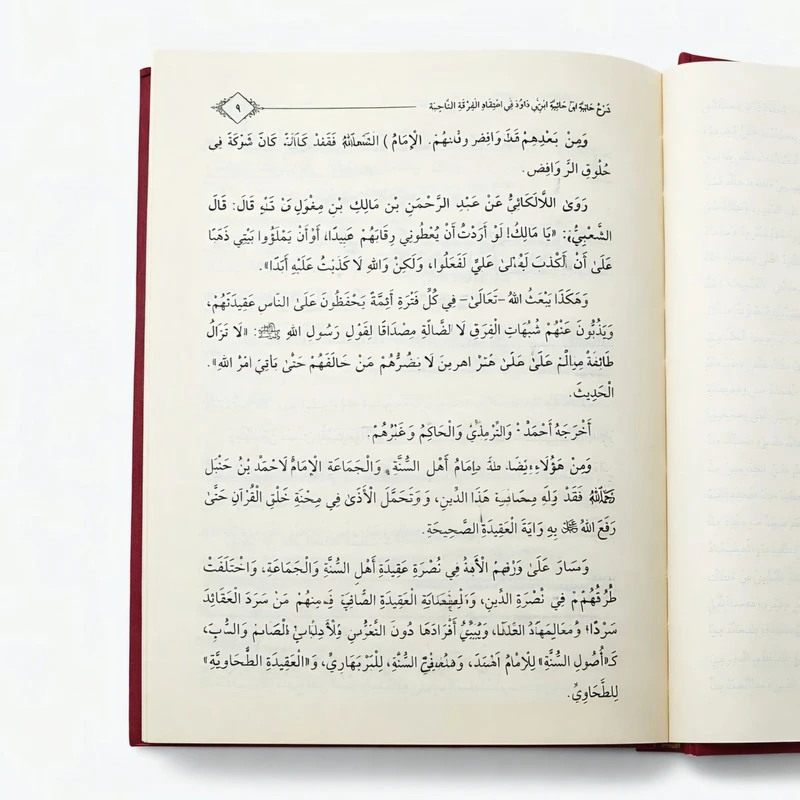 شَرْحُ حَائِيَّةِ ابْنِ أَبِي دَاوُدَ فِي اعْتِقَادِ الْفِرْقَةِ النَّاجِيَةِ
٩
وَمِنْ بَعْدِهِمْ الْإِمَامُ) فَقَدْ كَانَ شَوْكَةً فِي
حُلُوقِ الرَّوَافِضِ.
رَوَىٰ اللَّالَكَائِيُّ عَنْ عَبْدِ الرَّحْمَنِ بْنِ مَالِكِ بْنِ مِغْوَلٍ قَالَ: قَالَ
الشَّعْبِيُّ: «يَا مَالِكُ! لَوْ أَرَدْتُ أَنْ يُعْطُونِي رِقَابَهُمْ عَبِيدًا، أَوْ أَنْ يَمْلَؤُوا بَيْتِي ذَهَبًا
عَلَىٰ أَنْ أَكْذِبَ عَلَىٰ عَلِيٍّ لَفَعَلُوا، وَلَكِنْ وَاللهِ لَا كَذَبْتُ عَلَيْهِ أَبَدًا».
وَهَكَذَا يَبْعَثُ اللهُ –تَعَالَىٰ– فِي كُلِّ فَتْرَةٍ أَئِمَّةً يَحْفَظُونَ عَلَىٰ النَّاسِ عَقِيدَتَهُمْ،
وَيَذُبُّونَ عَنْهُمْ شُبُهَاتِ الْفِرَقِ الضَّالَّةِ مِصْدَاقًا لِقَوْلِ رَسُولِ اللهِ ﷺ: «لَا تَزَالُ
طَائِفَةٌ عَلَىٰ لَا يَضُرُّهُمْ مَنْ خَالَفَهُمْ حَتَّىٰ يَأْتِيَ أَمْرُ اللهِ».
الْحَدِيثَ.
أَخْرَجَهُ أَحْمَدُ وَالتِّرْمِذِيُّ وَالْحَاكِمُ وَغَيْرُهُمْ.
وَمِنْ هَؤُلَاءِ إِمَامُ أَهْلِ السُّنَّةِ وَالْجَمَاعَةِ الْإِمَامُ أَحْمَدُ بْنُ حَنْبَلٍ
فَقَدْ هَذَا الدِّينِ، وَتَحَمَّلَ الْأَذَىٰ فِي مِحْنَةِ خَلْقِ الْقُرْآنِ حَتَّىٰ
رَفَعَ اللهُ بِهِ رَايَةَ الْعَقِيدَةِ الصَّحِيحَةِ.
وَسَارَ عَلَىٰ فِي نُصْرَةِ عَقِيدَةِ أَهْلِ السُّنَّةِ وَالْجَمَاعَةِ، وَاخْتَلَفَتْ
طُرُقُهُمْ فِي نُصْرَةِ الدِّينِ، الْعَقِيدَةِ فَمِنْهُمْ مَنْ سَرَدَ الْعَقَائِدَ
سَرْدًا؛ أَفْرَادَهَا دُونَ
كَـ«أُصُولِ السُّنَّةِ» لِلْإِمَامِ أَحْمَدَ، السُّنَّةِ، لِلْبَرْبَهَارِيِّ، وَ«الْعَقِيدَةِ الطَّحَاوِيَّةِ»
لِلطَّحَاوِيِّ.